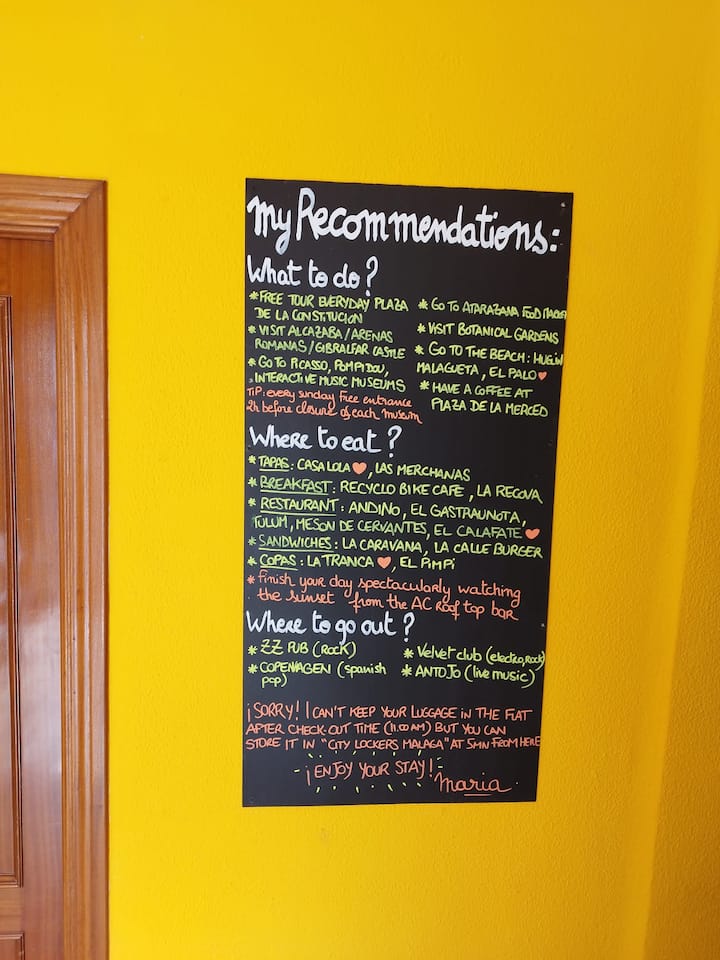 my Recommendations:
What to do?
* FREE TOUR EVERYDAY PLAZA
DE LA CONSTITUCION
* VISIT ALCAZABA / ARENAS
ROMANAS / GIBRALFAR CASTLE
* GO TO PICASSO, POMPIDOU,
INTERACTIVE MUSIC MUSEUMS
TIP: every sunday free entrance
2h before closure of each museum
* GO TO ATARAZANA FOOD MARKET
* VISIT BOTANICAL GARDENS
* GO TO THE BEACH: HUELIN
MALAGUETA, EL PALO ♥
* HAVE A COFFEE AT
PLAZA DE LA MERCED
Where to eat?
* TAPAS: CASA LOLA ♥, LAS MERCHANAS
* BREAKFAST: RECYCLO BIKE CAFE, LA RECOVA
* RESTAURANT: ANDINO, EL GASTRAUNOTA,
TULUM, MESON DE CERVANTES, EL CALAFATE ♥
* SANDWICHES: LA CARAVANA, LA CALLE BURGER
* COPAS: LA TRANCA ♥, EL PIMPI
* finish your day spectacularly watching
the sunset from the AC Roof top bar
Where to go out?
* ZZ PUB (ROCK)
* COPENHAGEN (spanish
pop)
* Velvet club (electro, rock)
* ANTOJO (live music)
¡SORRY! I CAN'T KEEP YOUR LUGGAGE IN THE FLAT
AFTER CHECK-OUT TIME (11.00 AM) BUT YOU CAN
STORE IT IN "CITY LOCKERS MALAGA" AT 5MN FROM HERE
¡ENJOY YOUR STAY!
Maria